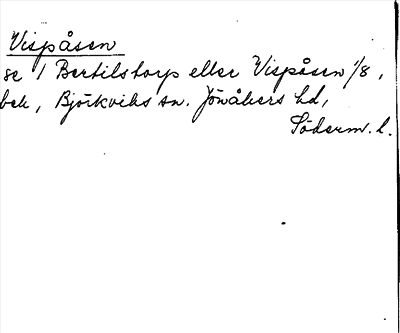 Vispåsen
se 1 Bertilstorp eller Vispåsen 1/8,
beb, Björkviks sn. Jönåkers hd,
Söderm. l.